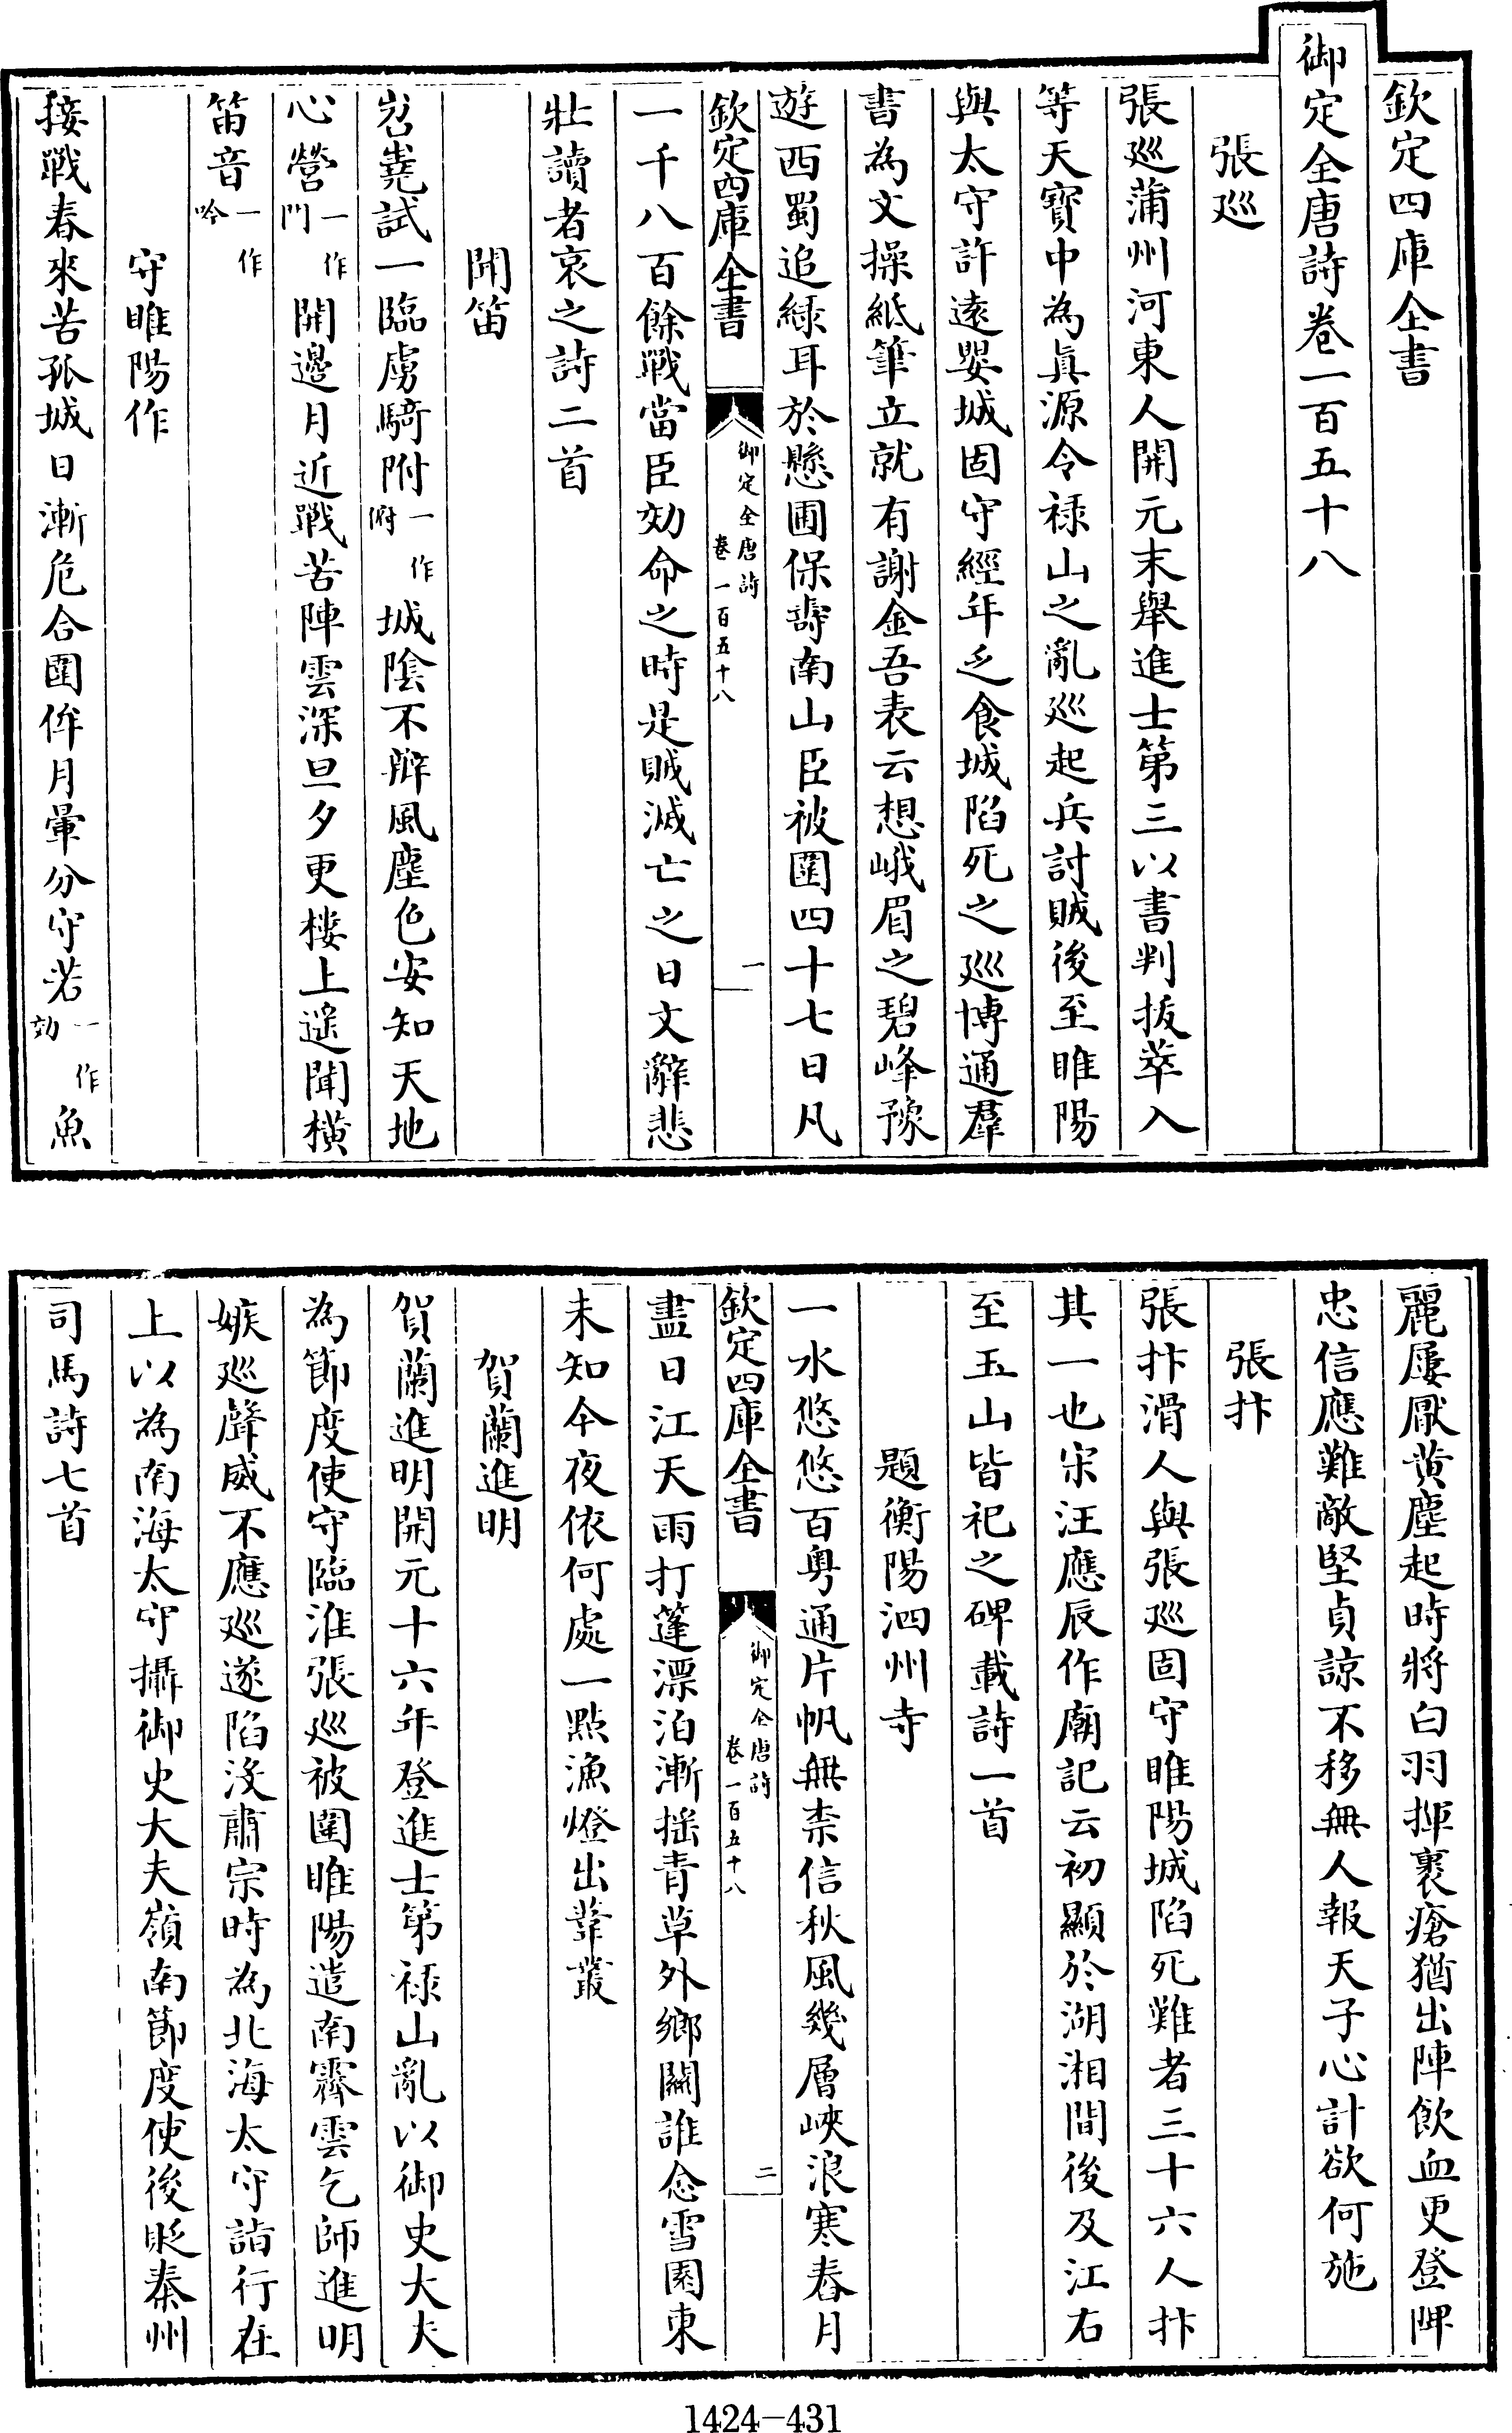 欽定四庫全書
御定全唐詩卷一百五十八
張巡
張巡蒲州河東人開元末舉進士第三以書判拔萃入
等天寶中為真源令祿山之亂巡起兵討賊後至睢陽
與太守許遠嬰城固守經年乏食城陷死之巡博通羣
書為文操紙筆立就有謝金吾表云想峨眉之碧峰豫
遊西蜀追綠耳於懸圃保壽南山臣被圍四十七日凡
欽定四庫全書 御定全唐詩 卷一百五十八 一
一千八百餘戰當臣効命之時是賊滅亡之日文辭悲
壯讀者哀之詩二首
聞笛
岧嶤試一臨虜騎附一作俯城陰不辨風塵色安知天地
心營一作門開邊月近戰苦陣雲深旦夕更樓上遥聞橫
笛音一作吟
守睢陽作
接戰春來苦孤城日漸危合圍侔月暈分守若一作効魚
麗屢厭黄塵起時將白羽揮裹瘡猶出陣飲血更登陴
忠信應難敵堅貞諒不移無人報天子心計欲何施
張抃
張抃滑人與張巡固守睢陽城陷死難者三十六人抃
其一也宋汪應辰作廟記云初顯於湖湘間後及江右
至玉山皆祀之碑載詩一首
題衡陽泗州寺
一水悠悠百粤通片帆無柰信秋風幾層峽浪寒舂月
欽定四庫全書 御定全唐詩 卷一百五十八 二
盡日江天雨打蓬漂泊漸揺青草外鄉關誰念雪園東
未知今夜依何處一點漁燈出葦叢
賀蘭進明
賀蘭進明開元十六年登進士第祿山亂以御史大夫
為節度使守臨淮張巡被圍睢陽遣南霽雲乞師進明
嫉巡聲威不應巡遂陷没肅宗時為北海太守詣行在
上以為南海太守攝御史大夫嶺南節度使後貶秦州
司馬詩七首
1424-431